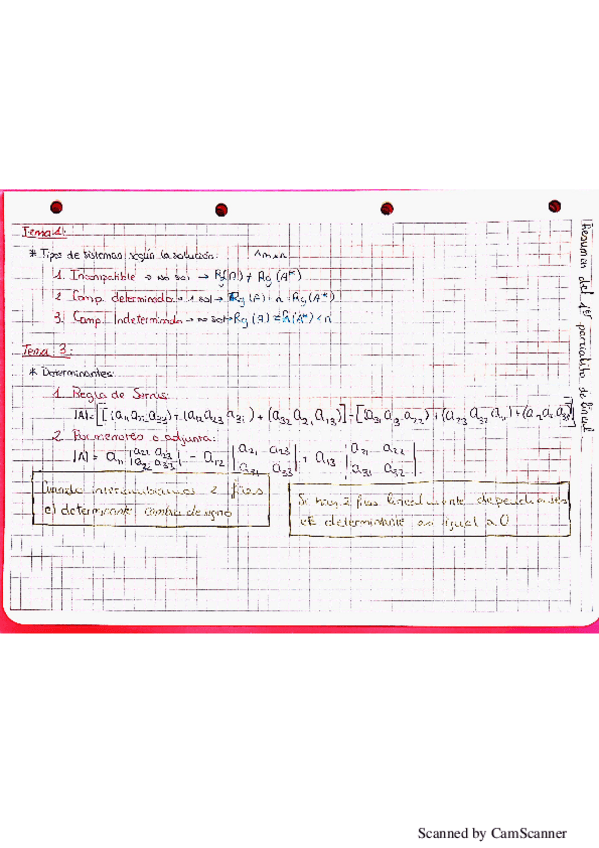 Resumen del 1er parcialito de lineal
Tema 1:
* Tipos de sistemas según la solución: Am×n
1. Incompatible → no sol → Rg(A) ≠ Rg(A*)
2. Comp. determinado → 1 sol → Rg(A) = n = Rg(A*)
3. Comp. Indeterminado → ∞ sol → Rg(A) = R(A*) < n
Tema 3:
* Determinantes:
1. Regla de Sarrus:
2. Por menores o adjunta:
|A| = a11 |a22 a23 - a12 |a21 a23 + a13 |a21 a22
a32 a33| a31 a33| a31 a32|
Cuando intercambiamos 2 filas
el determinante cambia de signo
Si hay 2 filas linealmente dependientes
determinante igual a 0
Scanned by CamScanner